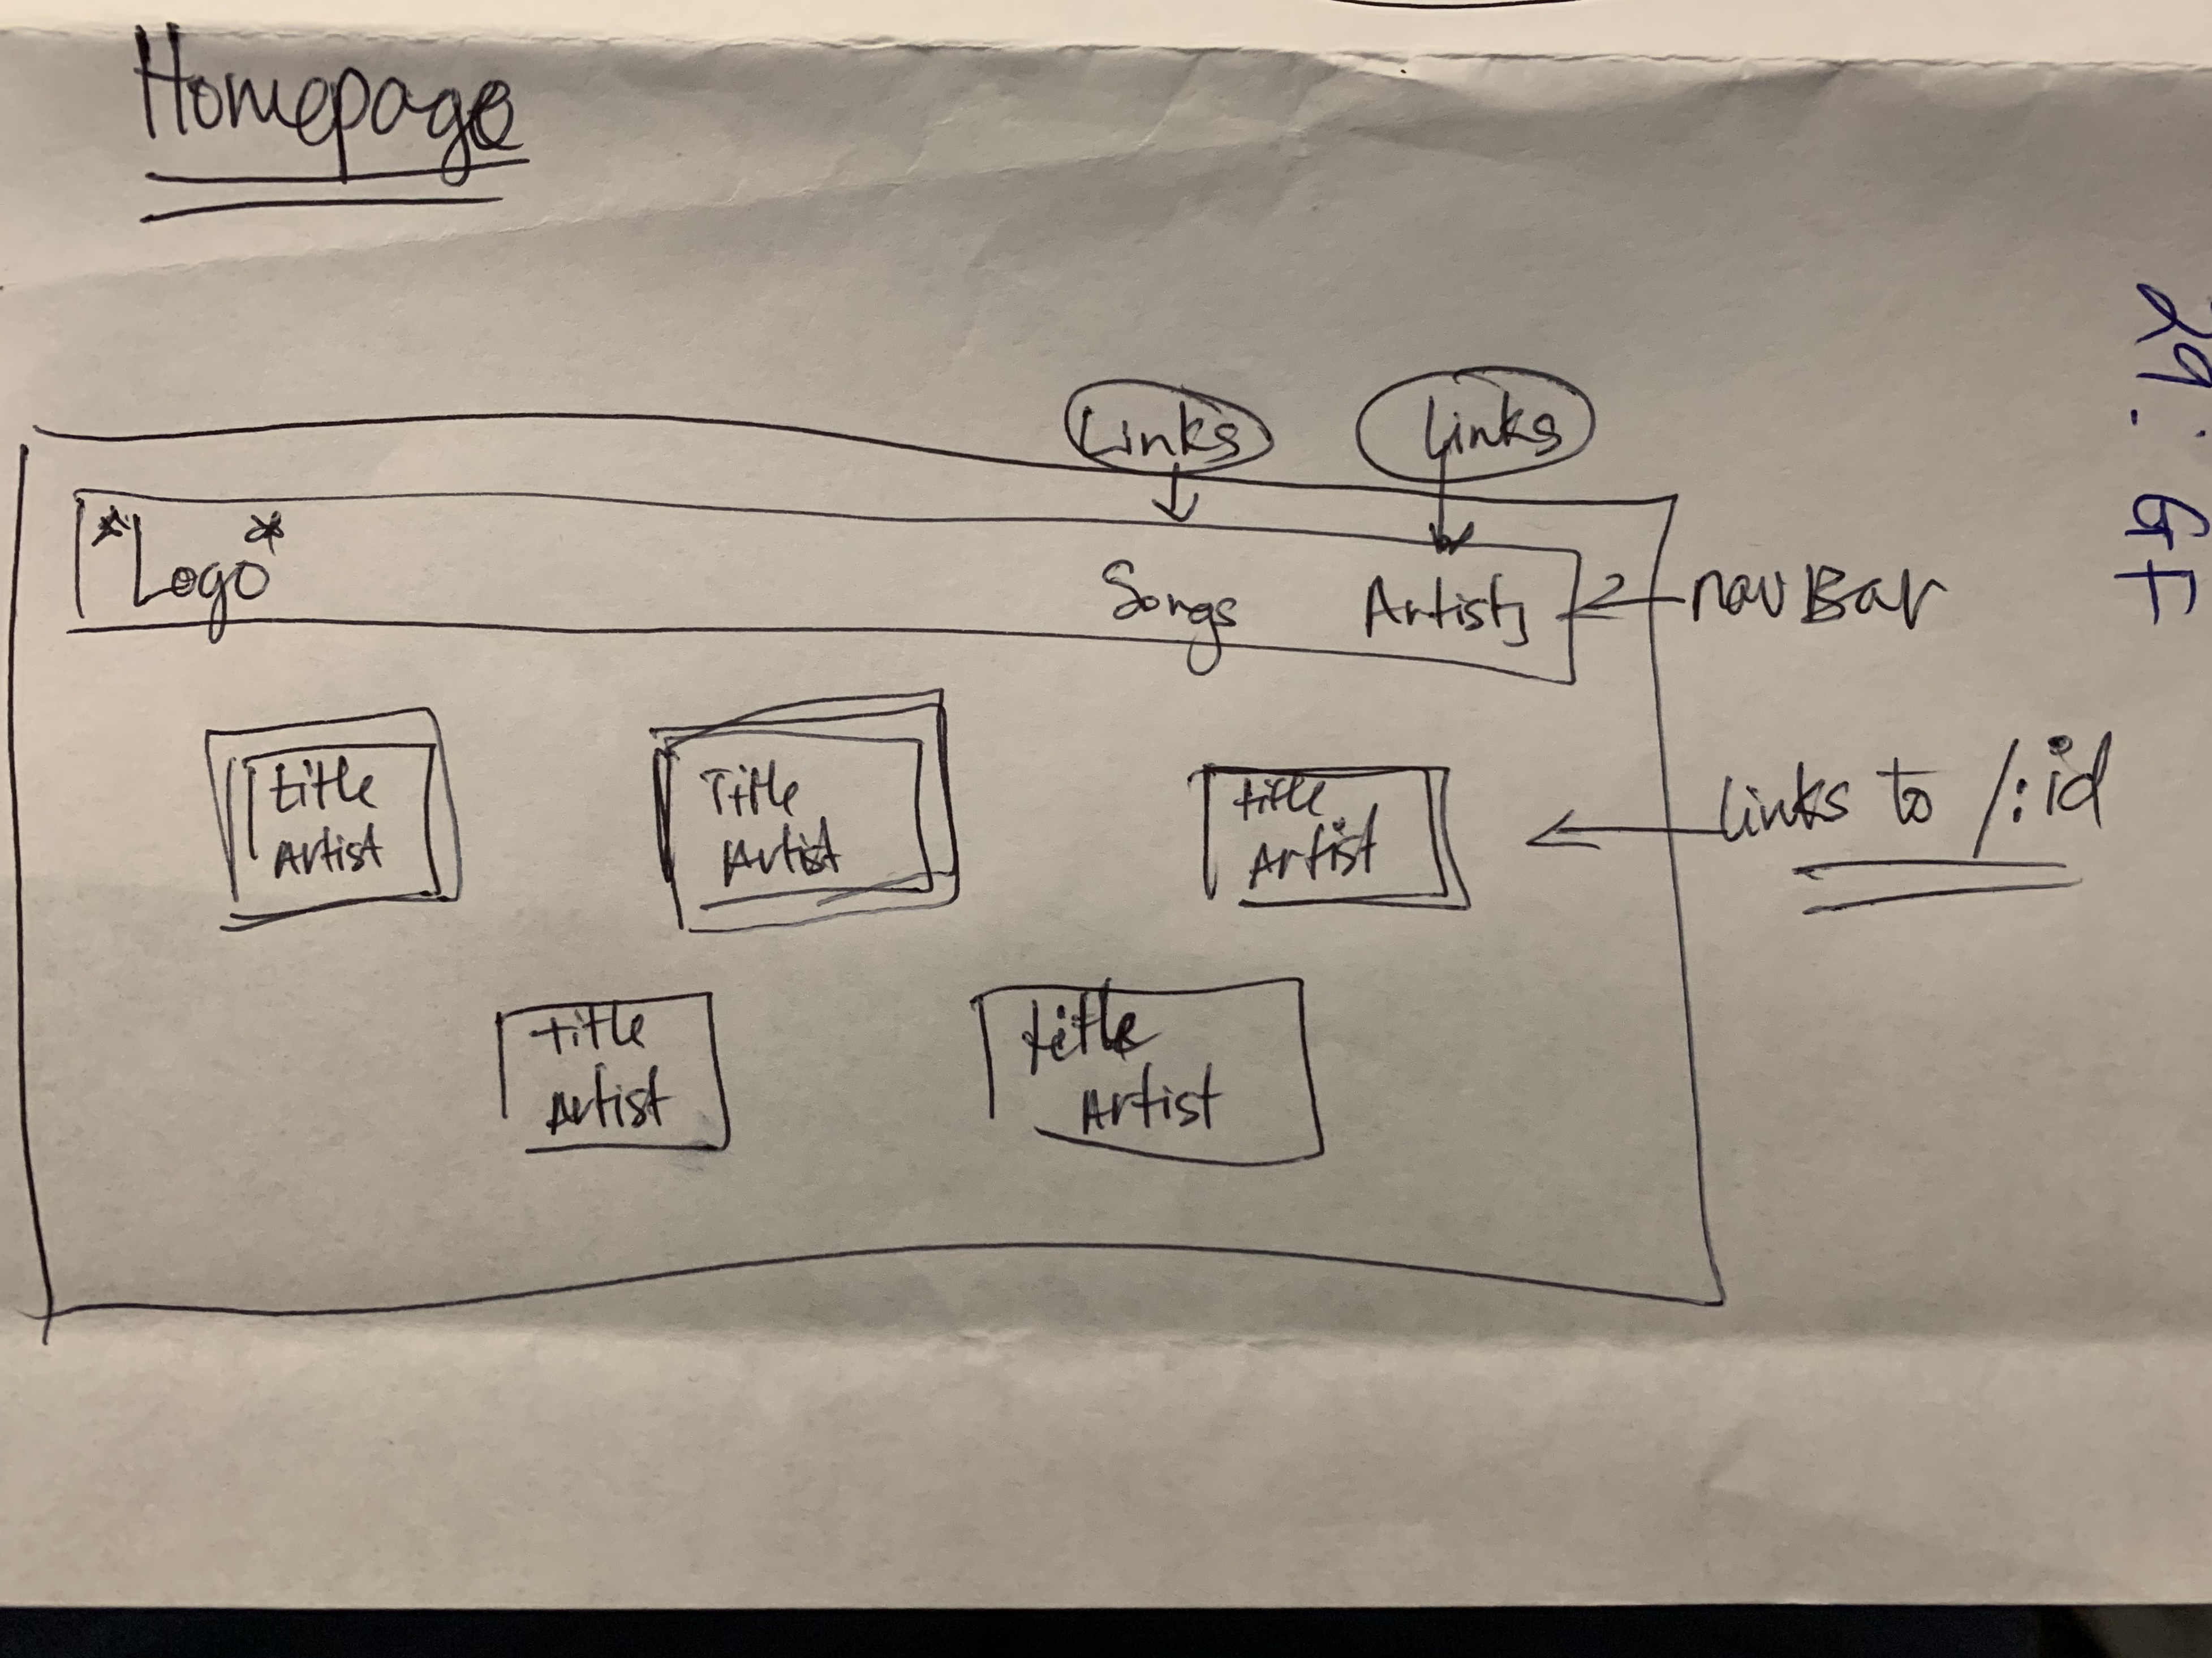 Homepage
Links Links
*Logo*
Songs Artists
navBar
title
Artist
Title
Artist
title
Artist
links to /:id
title
Artist
title
Artist